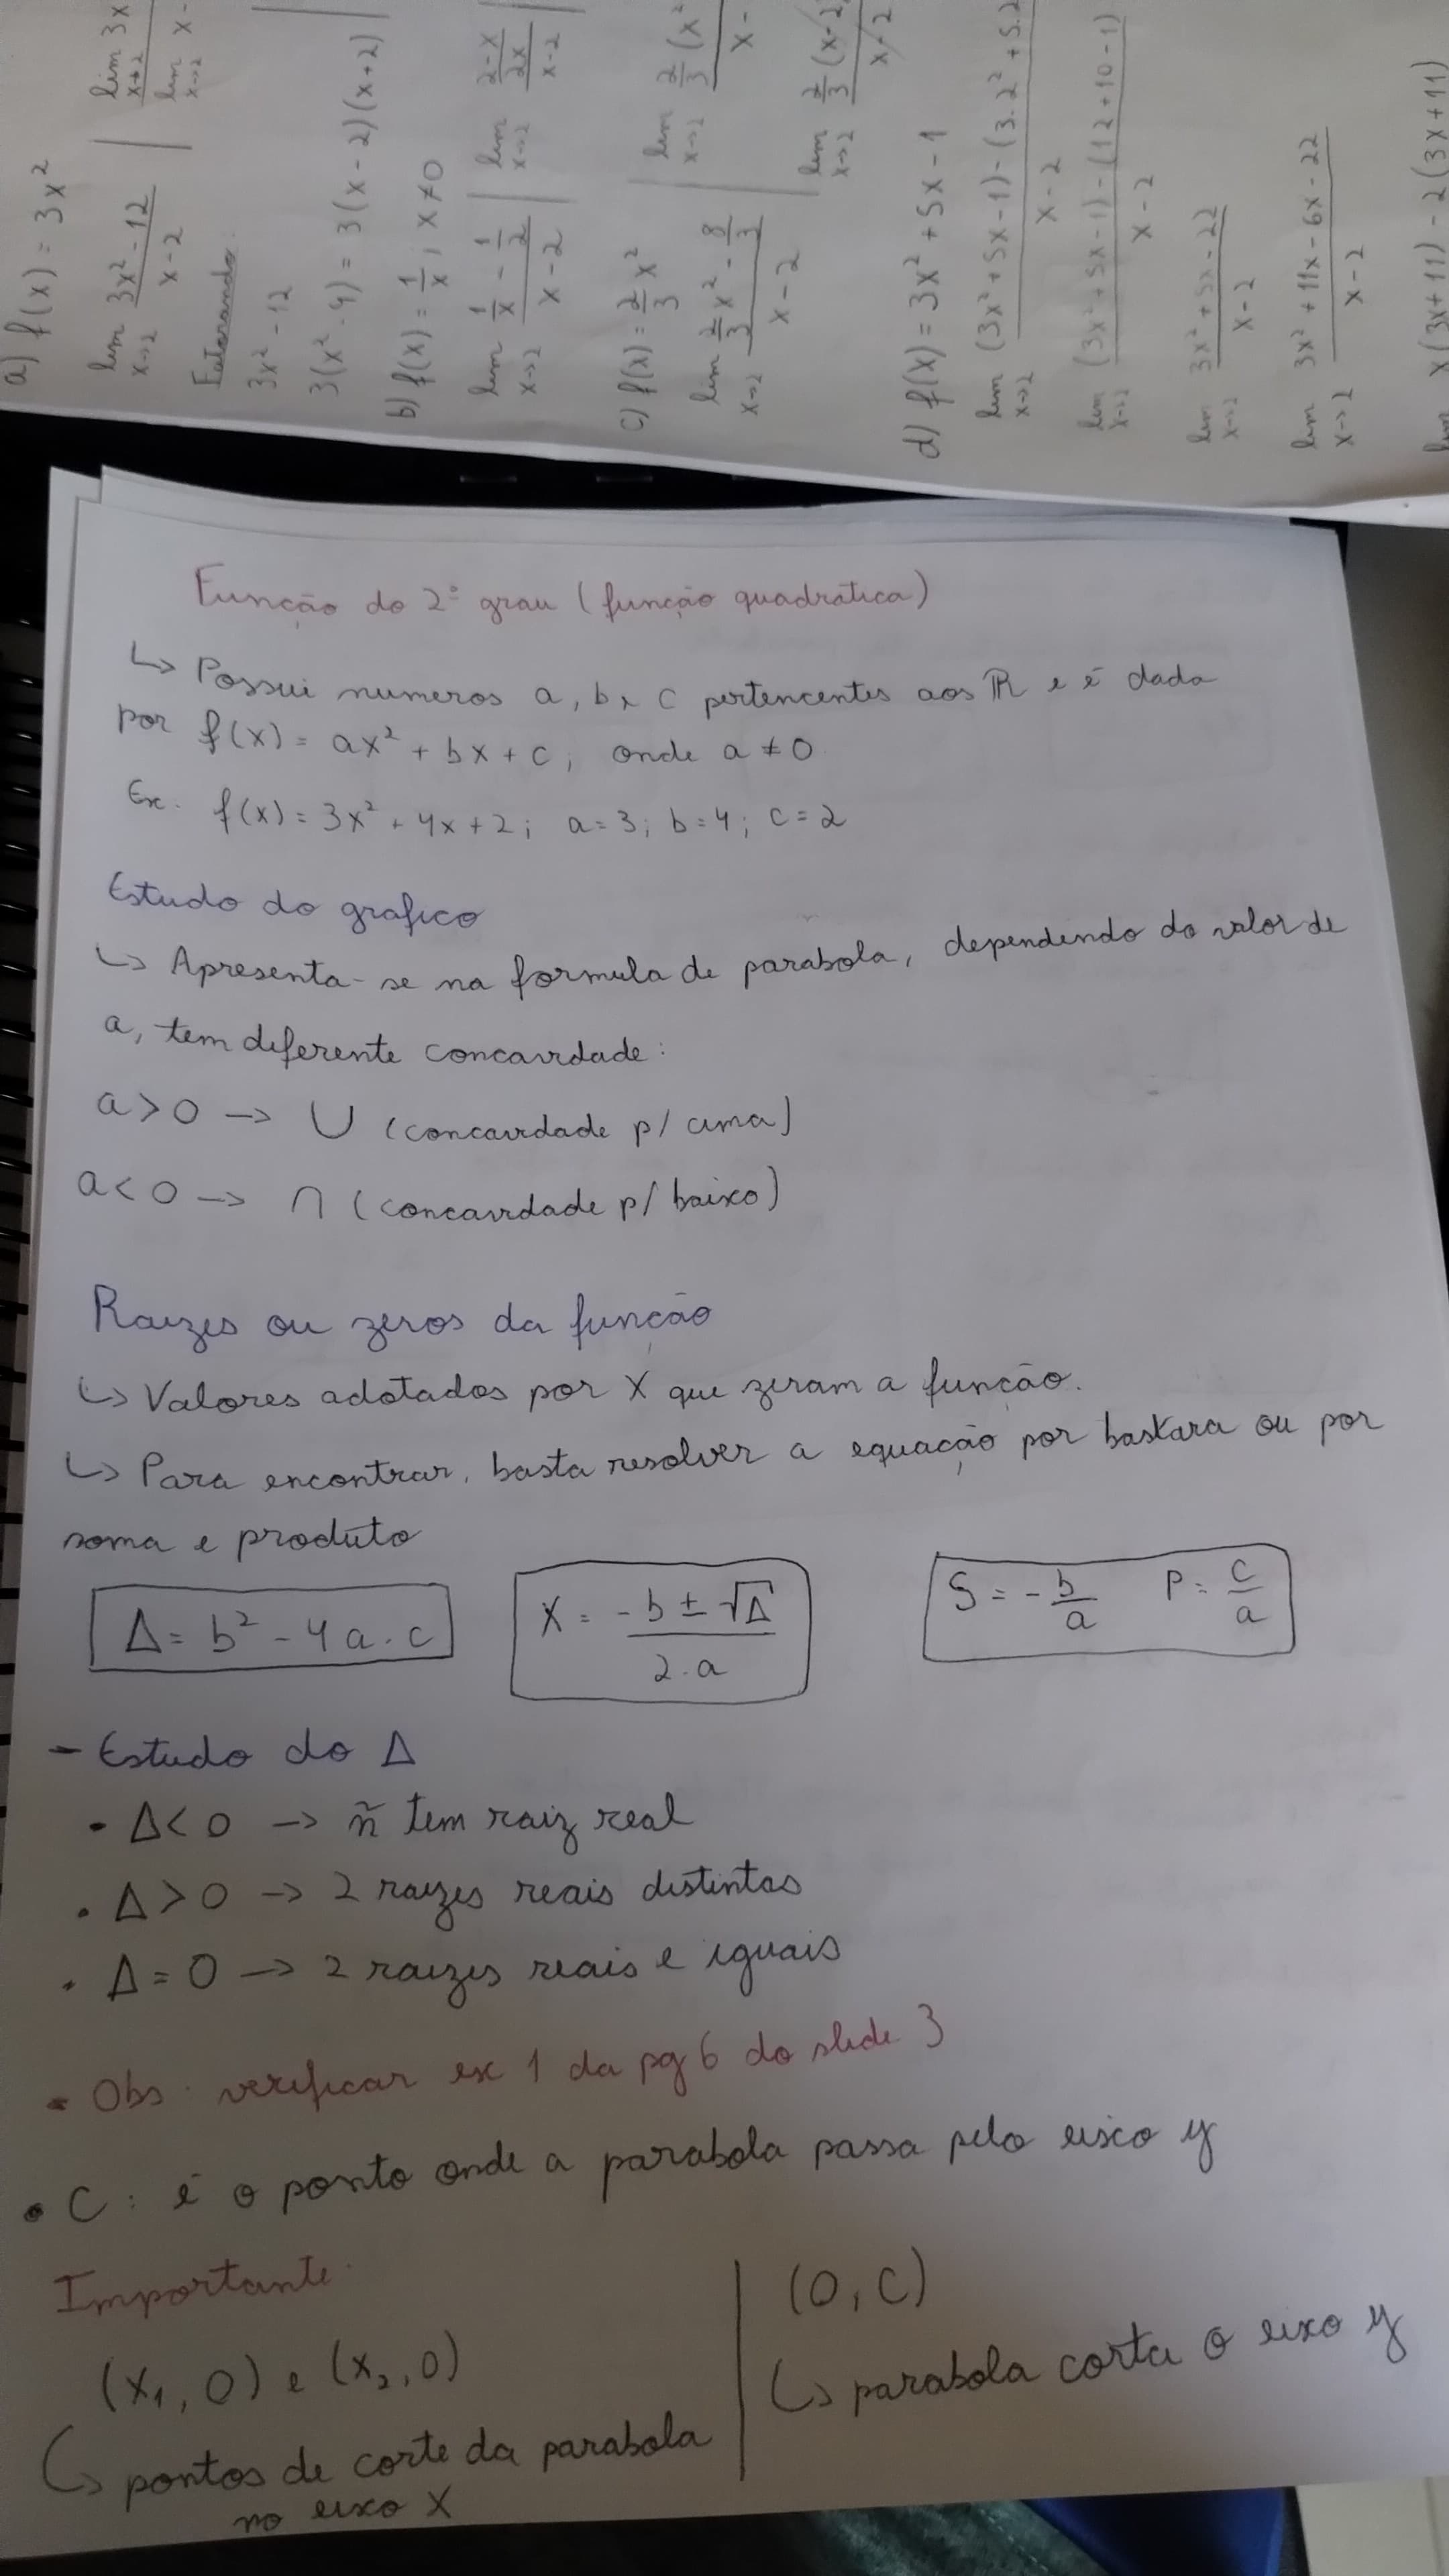 a) f(x) = 3x²
lim x→2 (3x² - 12)/(x - 2) | lim x→2 3x
lim x→2 x -
Fatorando:
3x² - 12
3(x² - 4) = 3(x - 2)(x + 2)
b) f(x) = 1/x; x ≠ 0
lim x→2 (1/x - 1/2)/(x - 2) | lim x→2 ((2 - x)/2x)/(x - 2)
c) f(x) = 2/3 x²
lim x→2 (2/3 x² - 8/3)/(x - 2) | lim x→2 2/3 (x² / x -
lim x→2 2/3 (x - 2) / x - 2
d) f(x) = 3x² + 5x - 1
lim x→2 (3x² + 5x - 1) - (3.2² + 5.2 / x - 2
lim x→2 ((3x² + 5x - 1) - (12 + 10 - 1))/(x - 2)
lim x→2 (3x² + 5x - 22)/(x - 2)
lim x→2 (3x² + 11x - 6x - 22)/(x - 2)
lim x(3x + 11) - 2(3x + 11)
Função do 2º grau (função quadrática)
↳ Possui numeros a, b e c pertencentes aos ℝ e é dada
por f(x) = ax² + bx + c, onde a ≠ 0
Ex: f(x) = 3x² + 4x + 2; a = 3; b = 4; c = 2
Estudo do grafico
↳ Apresenta-se na formula de parabola, dependendo do valor de
a, tem diferente concavidade:
a > 0 → ∪ (concavidade p/ cima)
a < 0 → ∩ (concavidade p/ baixo)
Raizes ou zeros da função
↳ Valores adotados por x que zeram a função.
↳ Para encontrar, basta resolver a equação por baskara ou por
soma e produto
Δ = b² - 4a.c
X = (-b ± √Δ)/(2.a)
S = -b/a P = c/a
- Estudo do Δ
• Δ < 0 → ñ tem raiz real
• Δ > 0 → 2 raizes reais distintas
• Δ = 0 → 2 raizes reais e iguais
• Obs: verificar ex 1 da pg 6 do slide 3
• C: é o ponto onde a parabola passa pelo eixo y
Importante:
(x₁, 0) e (x₂, 0)
↳ pontos de corte da parabola
no eixo X
(0, c)
↳ parabola corta o eixo y